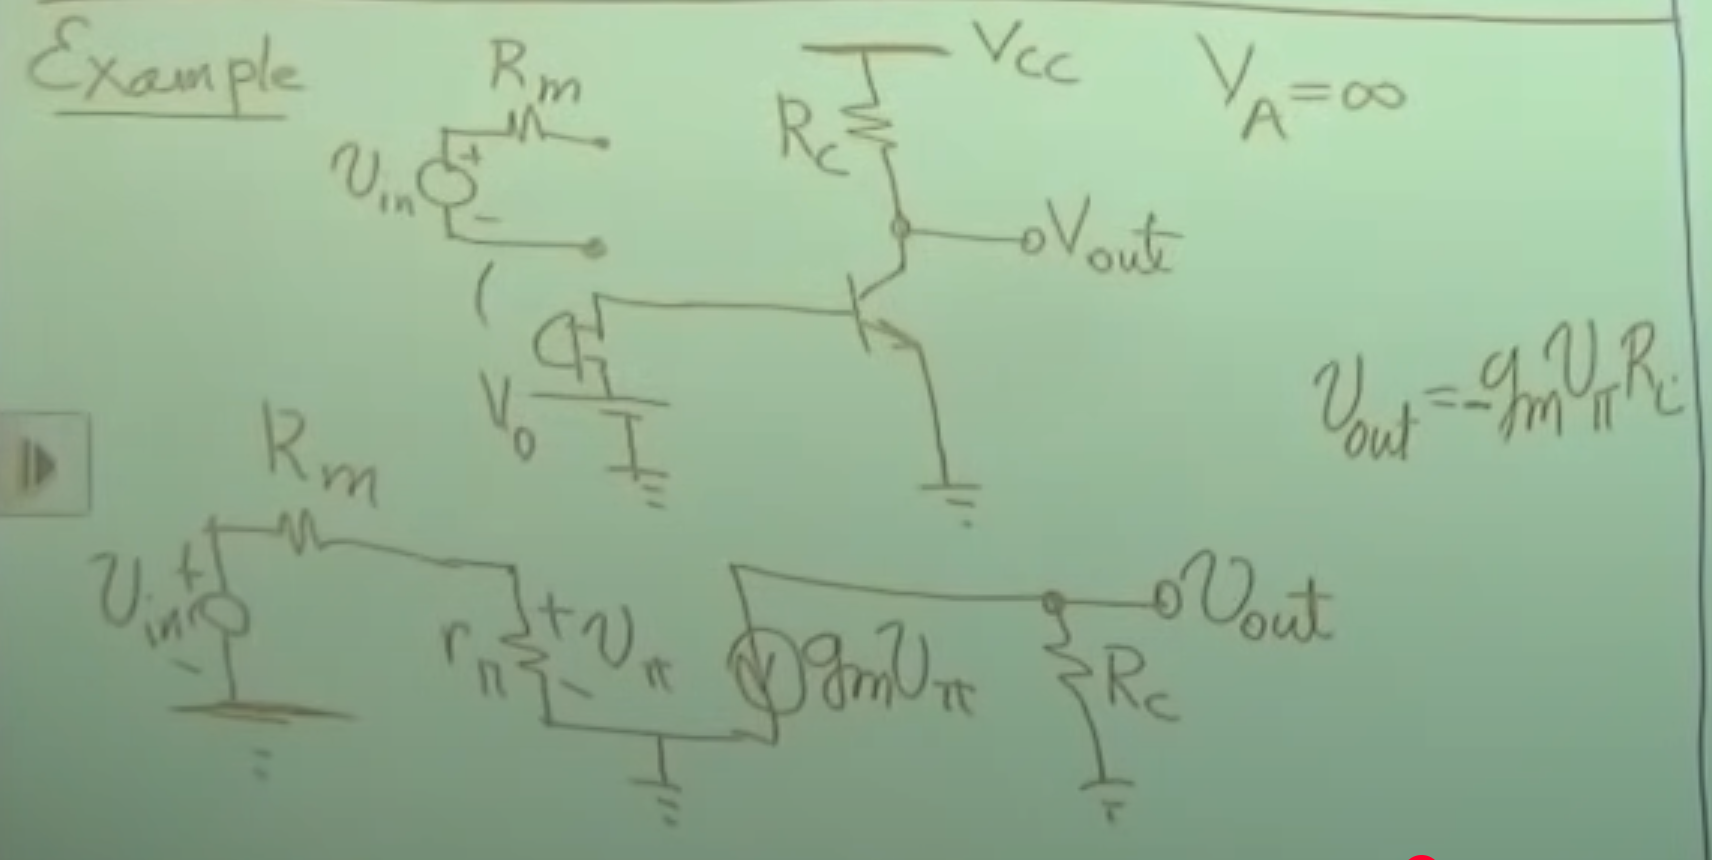 Example
R_m
V_CC
V_A = ∞
R_C
v_in
+
-
V_out
V_0
v_out = -g_m v_π R_C
R_m
v_in
+
-
r_π
+
v_π
-
g_m v_π
v_out
R_C